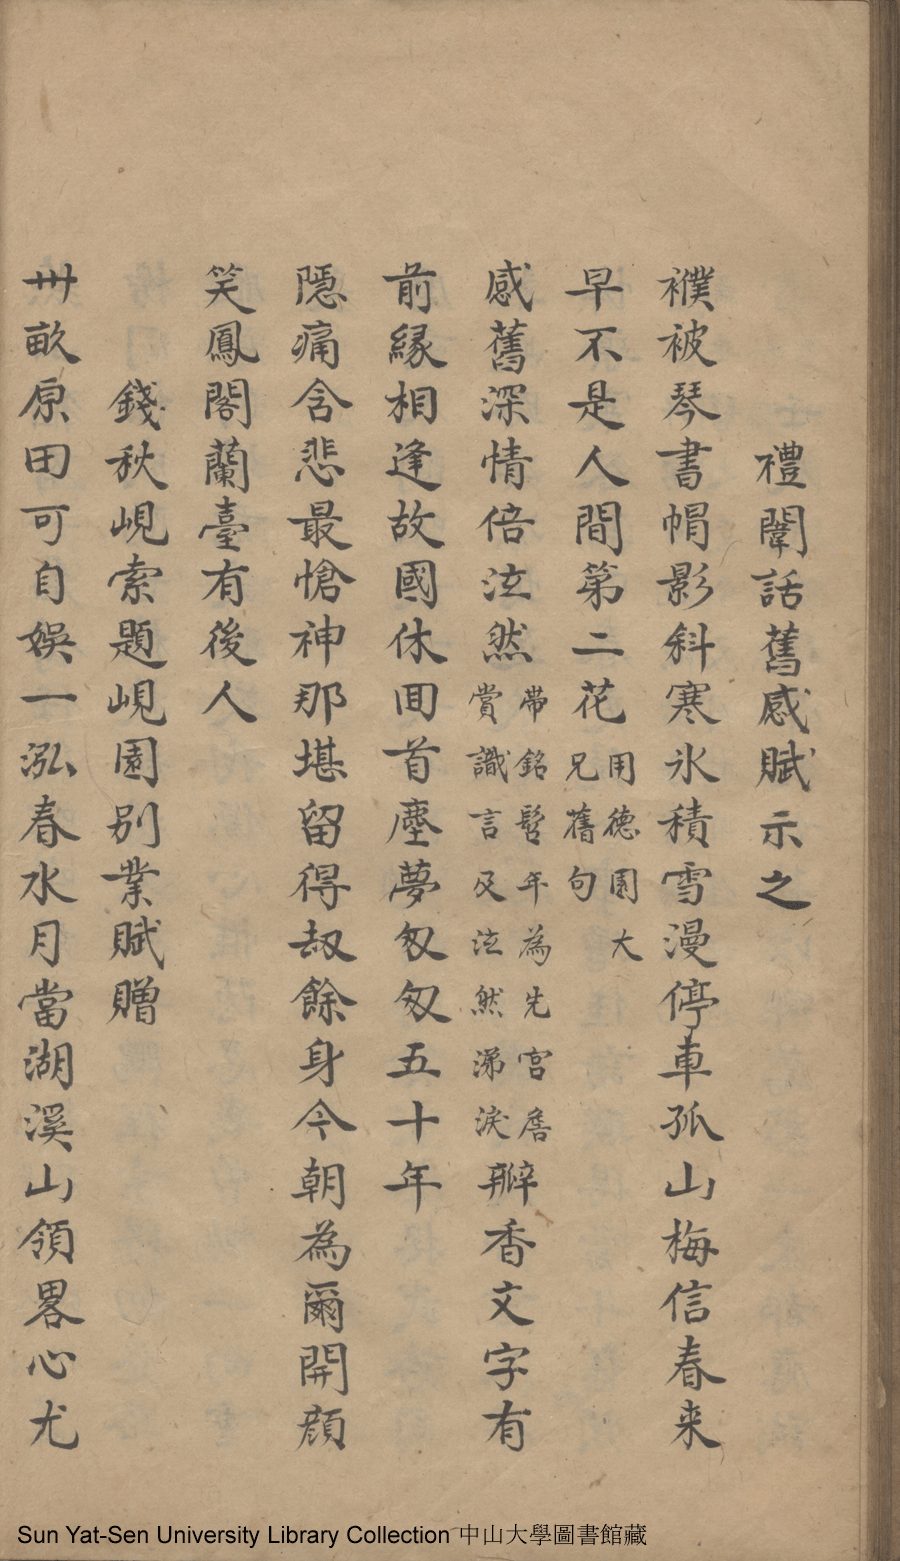 禮闈話舊感賦示之
襆被琴書帽影斜寒氷積雪漫停車孤山梅信春来
早不是人間第二花用德園大兄舊句
感舊深情倍泣然帯銘髫年為先宫詹賞識言及泫然涕淚瓣香文字有
前緣相逢故國休囬首塵夢匆匆五十年
隠痛含悲最愴神那堪留得刼餘身今朝為爾開顔
笑鳳閣蘭臺有後人
錢秋峴索題峴園别業賦贈
卅畝原田可自娱一泓春水月當湖溪山領畧心尤
Sun Yat-Sen University Library Collection 中山大學圖書館藏